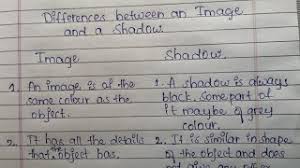 Differences between an Image
and a Shadow.
Image
Shadow.
1. An image is of the
same colour as the
object.
1. A shadow is always
black. Some part of
it maybe of grey
colour.
2. It has all the details
that object has.
2. It is similar in shape
of the object and does
not give any